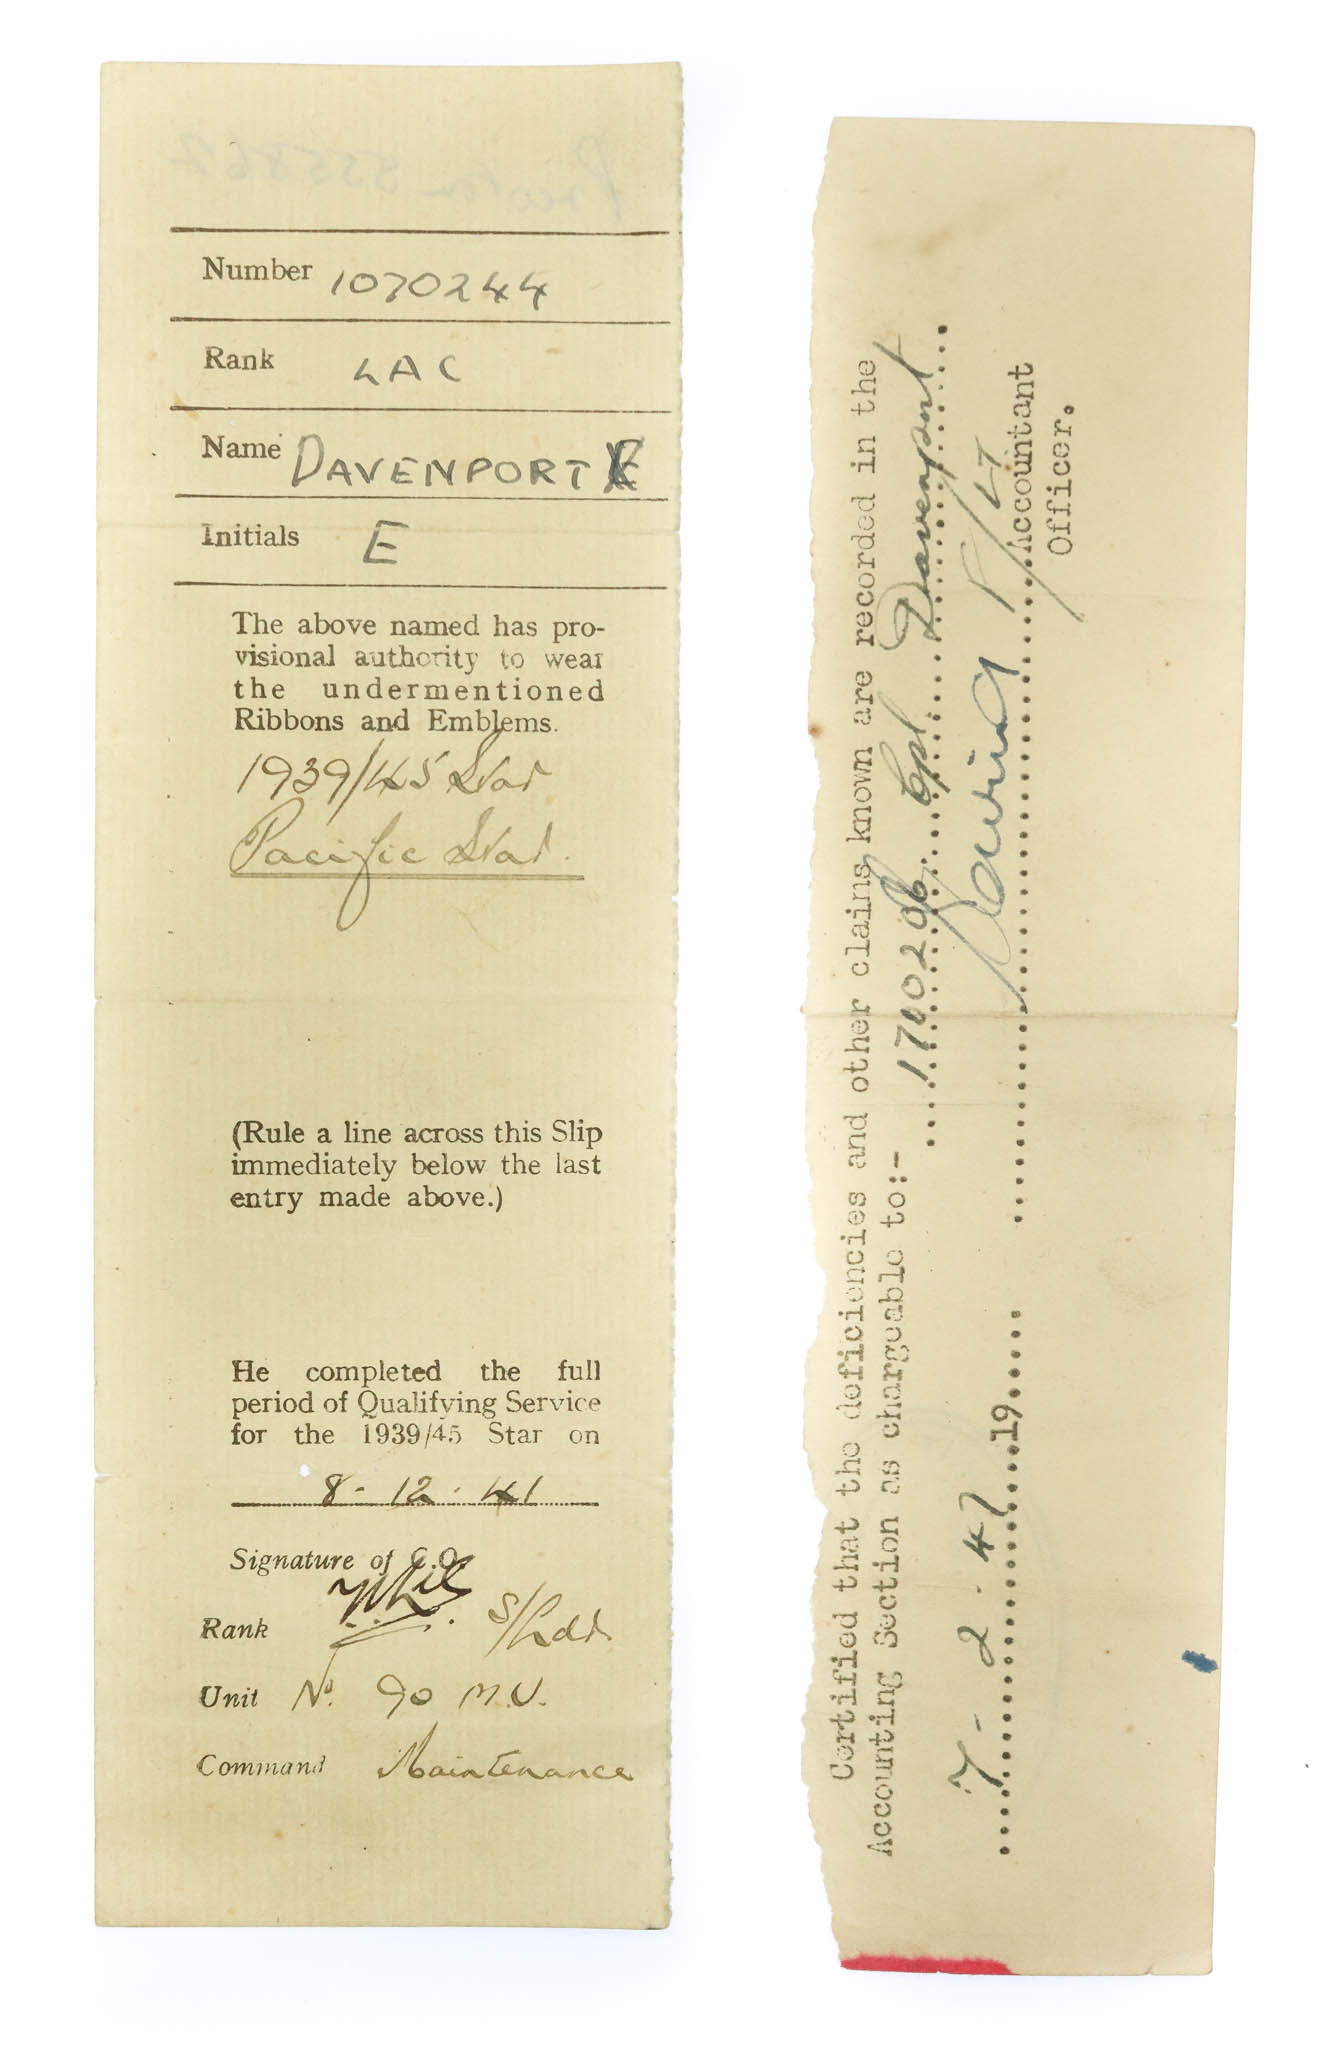 Number 1070244
Rank LAC
Name DAVENPORT
Initials E
The above named has pro-
visional authority to wear
the undermentioned
Ribbons and Emblems.
1939/45 Star
Pacific Star.
(Rule a line across this Slip
immediately below the last
entry made above.)
He completed the full
period of Qualifying Service
for the 1939/45 Star on
8 - 12 . 41
Signature of C.O.
Rank S/Ldr.
Unit No. 90 M.U.
Command Maintenance
Certified that the deficiencies and other claims known are recorded in the
Accounting Section as chargeable to:-
1700206 Cpl Davenport
7 - 2 . 47 19 F/Lt
Accountant
Officer.